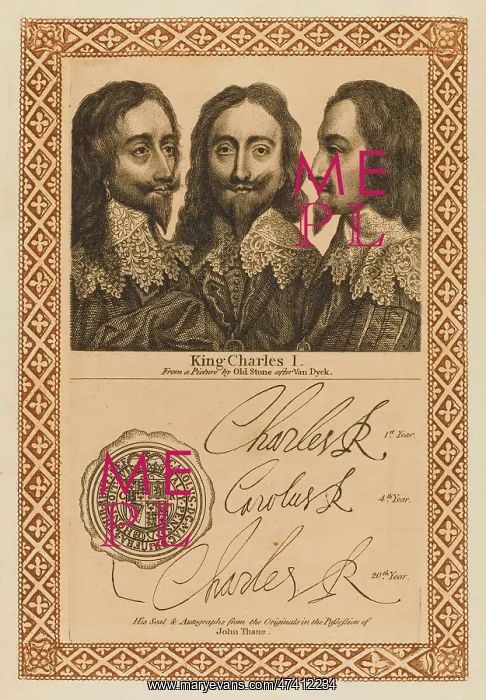 ME
PL
King Charles I.
From a Picture by Old Stone after Van Dyck.
Charles R 1st Year.
Carolus R 4th Year.
ME
PL
Charles R 20th Year.
His Seal & Autographs from the Originals in the Possession of
John Thane.
www.maryevans.com/47412234